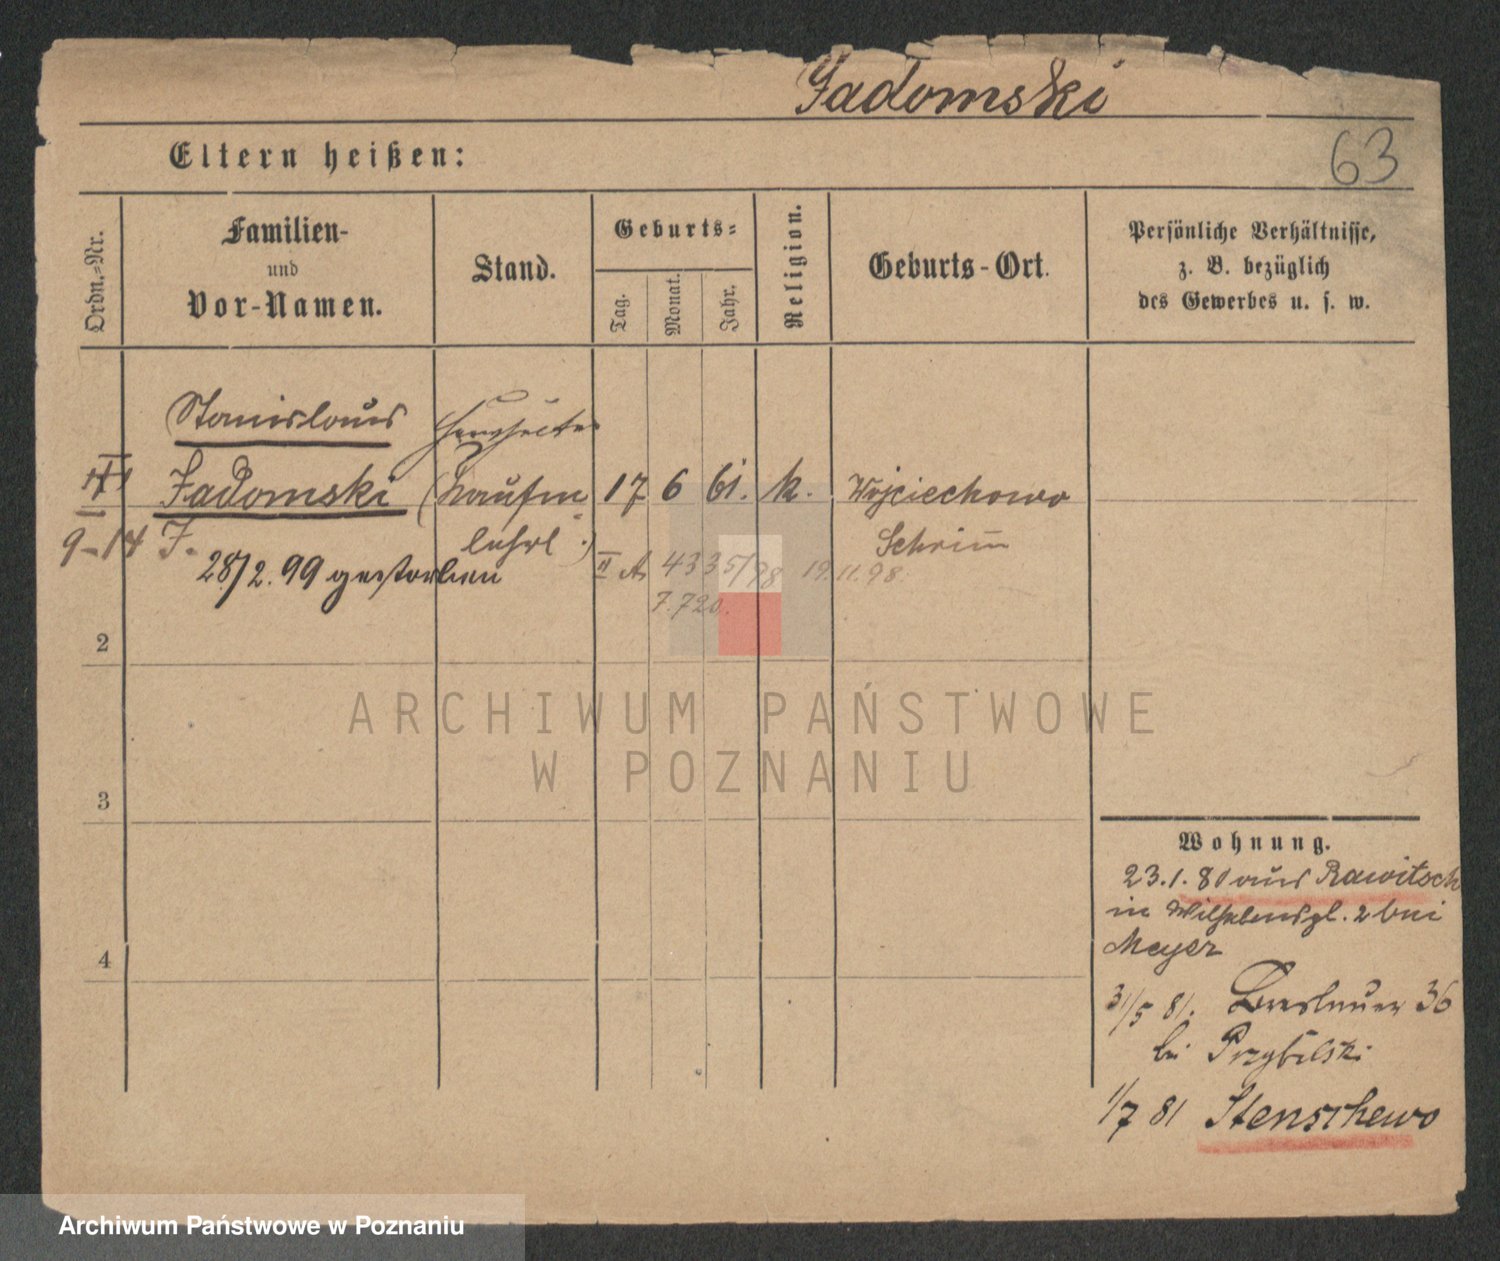 Jadomski
63
Eltern heißen:
Ordn.=Nr.
Familien-
und
Vor-Namen.
Stand.
Geburts=
Tag.
Monat.
Jahr.
Religion.
Geburts-Ort.
Persönliche Verhältnisse,
z. B. bezüglich
des Gewerbes u. s. w.
Stanislaus
Jadomski (Kaufm 17 6 61. k. Wojciechowo
lehrl.) Schrim
9-14 J.
28/2. 99 gestorben II A 4335/98 19.11.98.
7.720.
2
3
4
ARCHIWUM PAŃSTWOWE
W POZNANIU
Wohnung.
23.1.81 aus Rawitsch
in Wilhelmspl. 2 bei
Meyer
31/5 81. Breslauer 36
bei Przybilski
1/7 81 Stenschewo
Archiwum Państwowe w Poznaniu